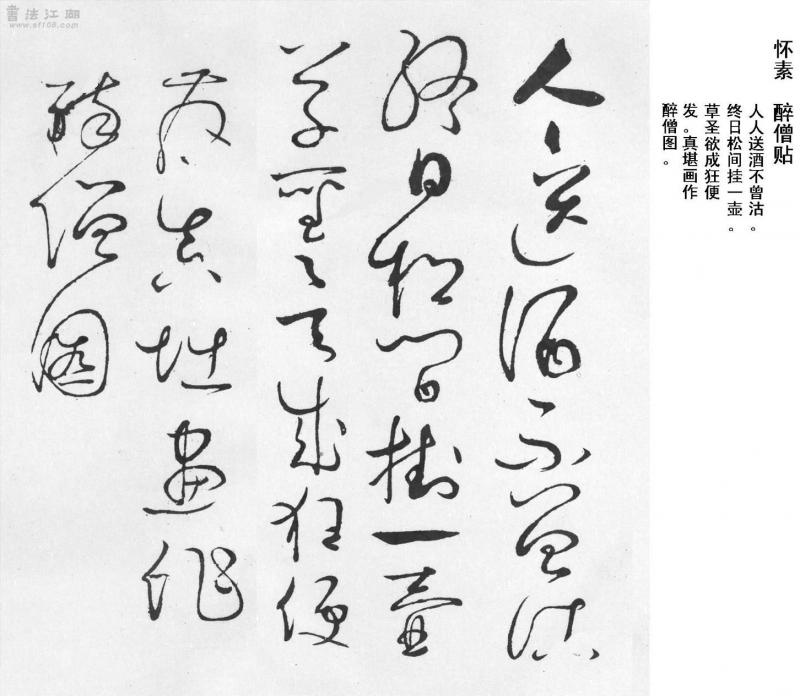 怀素 醉僧贴
人人送酒不曾沽。
终日松间挂一壶。
草圣欲成狂便
发。真堪画作
醉僧图。
人〻送酒不曾沽
終日松間掛一壺
草聖欲成狂便
發真堪畫作
醉僧圖
書法江湖
www.sf108.com